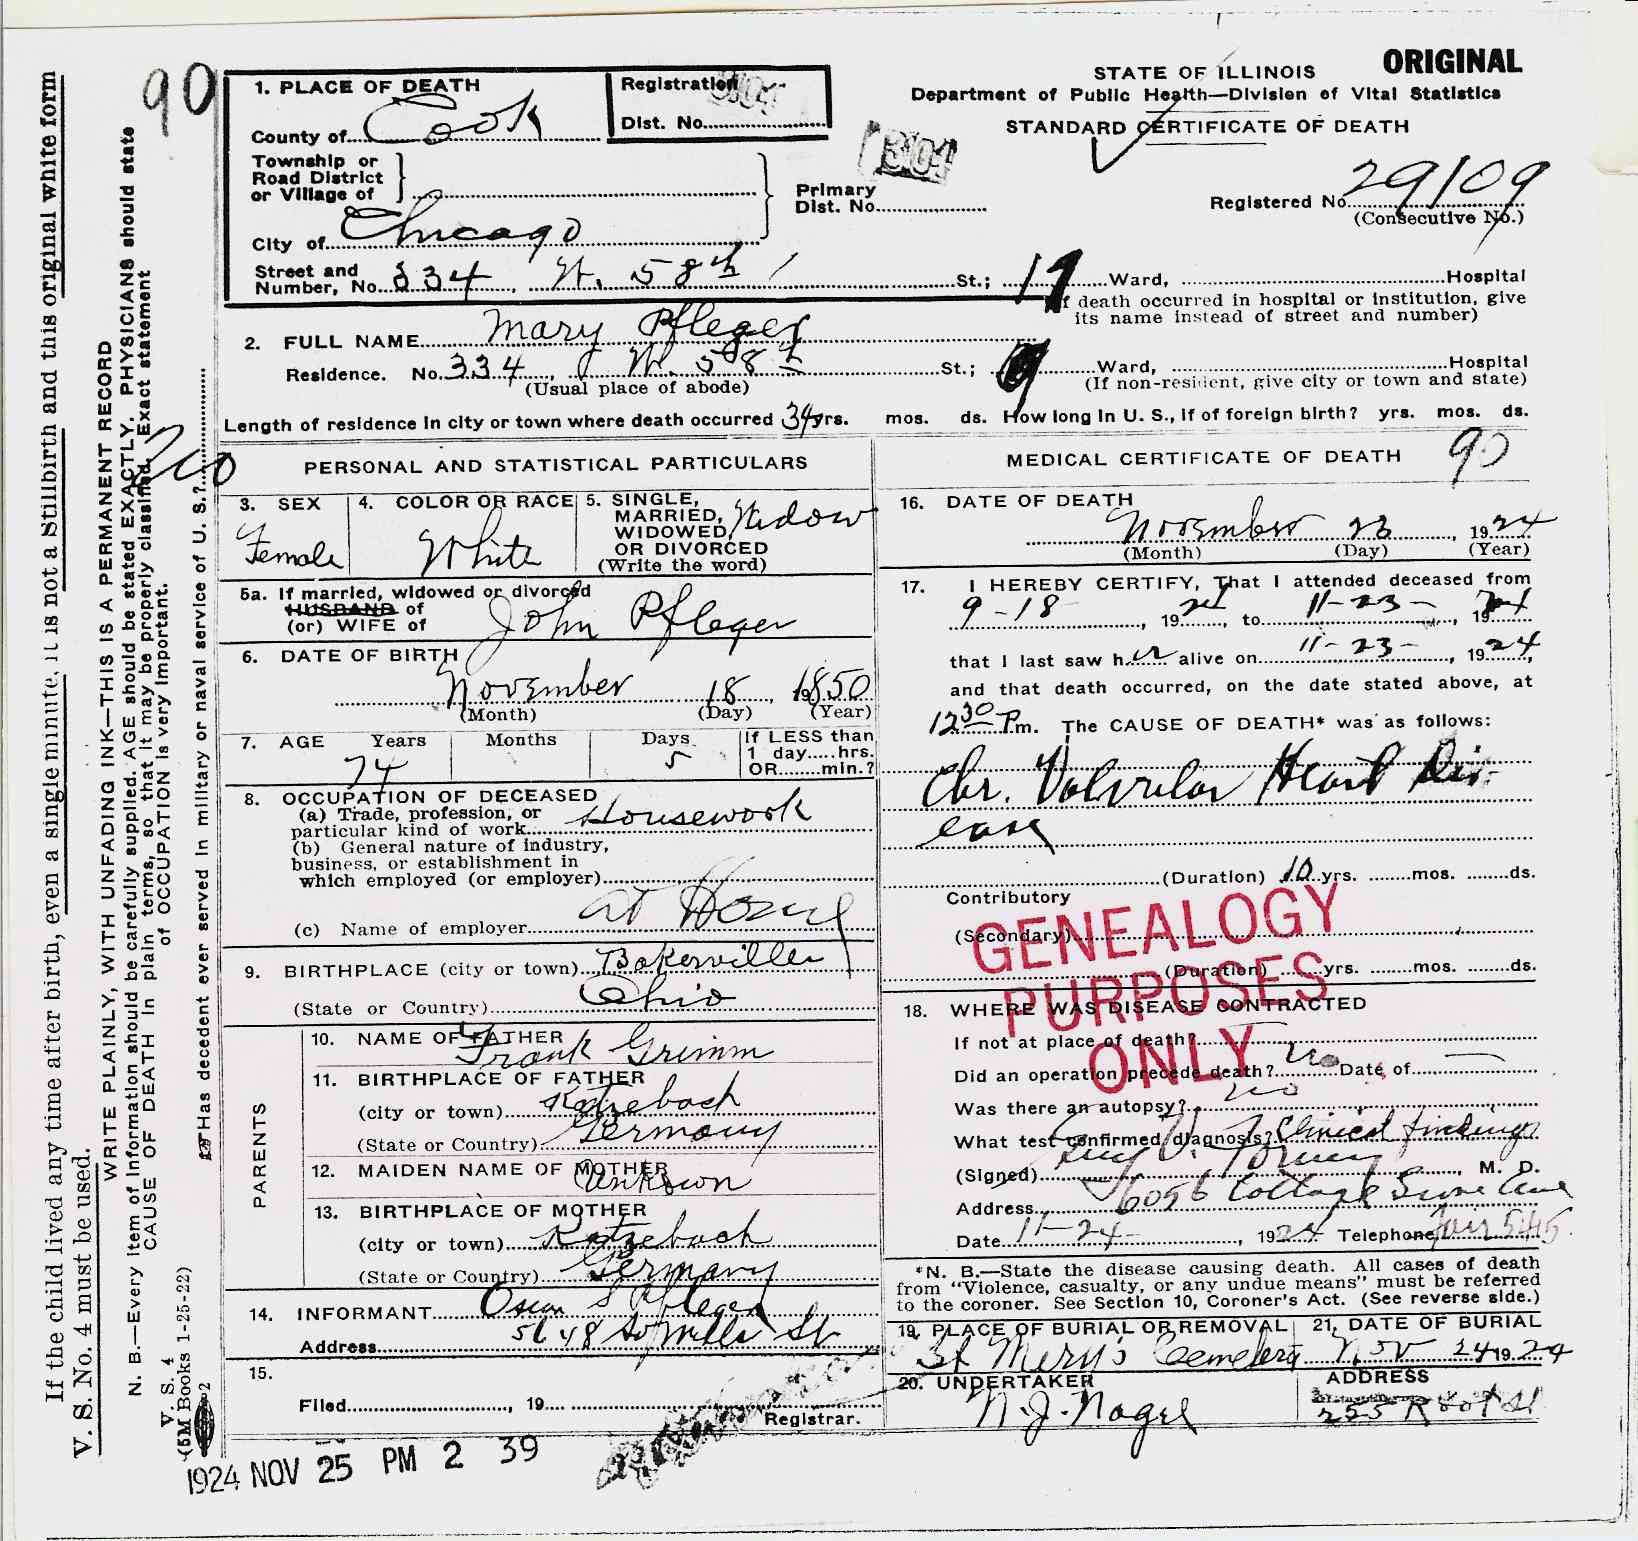 ORIGINAL
STATE OF ILLINOIS
Department of Public Health—Division of Vital Statistics
STANDARD CERTIFICATE OF DEATH
90
1. PLACE OF DEATH
County of Cook
Registration
Dist. No. 3104
Township or
Road District
or Village of
Primary
Dist. No. 3104
Registered No. 29109
(Consecutive No.)
City of Chicago
Street and
Number, No. 334 W. 58th St.; Ward, Hospital
(If death occurred in hospital or institution, give
its name instead of street and number)
2. FULL NAME Mary Pfleger
Residence. No. 334 W. 58th St.; Ward, Hospital
(Usual place of abode)
(If non-resident, give city or town and state)
Length of residence in city or town where death occurred 34 yrs. mos. ds. How long in U. S., if of foreign birth? yrs. mos. ds.
PERSONAL AND STATISTICAL PARTICULARS
3. SEX
Female
4. COLOR OR RACE
White
5. SINGLE,
MARRIED,
WIDOWED,
OR DIVORCED
(Write the word)
Widow
5a. If married, widowed or divorced
HUSBAND of
(or) WIFE of John Pfleger
6. DATE OF BIRTH
November 18, 1850
(Month) (Day) (Year)
7. AGE Years Months Days If LESS than
1 day.....hrs.
OR......min.?
74 5
8. OCCUPATION OF DECEASED
(a) Trade, profession, or
particular kind of work Housework
(b) General nature of industry,
business, or establishment in
which employed (or employer)
at Home
(c) Name of employer
9. BIRTHPLACE (city or town) Bakersville
(State or Country) Ohio
PARENTS
10. NAME OF FATHER
Frank Grimm
11. BIRTHPLACE OF FATHER
(city or town) Katzebach
(State or Country) Germany
12. MAIDEN NAME OF MOTHER
Unknown
13. BIRTHPLACE OF MOTHER
(city or town) Katzebach
(State or Country) Germany
14. INFORMANT Oscar S Pfleger
Address 5648 So Wells St
15.
Filed , 19
Registrar.
MEDICAL CERTIFICATE OF DEATH 90
16. DATE OF DEATH
November 23, 1924
(Month) (Day) (Year)
17. I HEREBY CERTIFY, That I attended deceased from
9-18-, 1924, to 11-23-, 1924
that I last saw her alive on 11-23-, 1924,
and that death occurred, on the date stated above, at
12 30 P.m. The CAUSE OF DEATH* was as follows:
Chr. Valvular Heart Dis-
ease
(Duration) 10 yrs. mos. ds.
Contributory
(Secondary)
(Duration) yrs. mos. ds.
GENEALOGY
PURPOSES
ONLY
18. WHERE WAS DISEASE CONTRACTED
If not at place of death?
Did an operation precede death? no Date of —
Was there an autopsy? no
What test confirmed diagnosis? Clinical findings
(Signed) , M. D.
Address 6056 Cottage Grove Ave
Date 11-24-, 1924 Telephone
*N. B.—State the disease causing death. All cases of death
from “Violence, casualty, or any undue means” must be referred
to the coroner. See Section 10, Coroner's Act. (See reverse side.)
19. PLACE OF BURIAL OR REMOVAL
St Mary's Cemetery
21. DATE OF BURIAL
Nov 24 1924
20. UNDERTAKER
N. J. Nagel
ADDRESS
255 Root St
1924 NOV 25 PM 2 39
If the child lived any time after birth, even a single minute, it is not a Stillbirth and this original white form
V. S. No. 4 must be used.
WRITE PLAINLY, WITH UNFADING INK—THIS IS A PERMANENT RECORD
N. B.—Every item of Information should be carefully supplied. AGE should be stated EXACTLY. PHYSICIANS should state
CAUSE OF DEATH in plain terms, so that it may be properly classified. Exact statement
of OCCUPATION is very important.
V. S. 4
(5M Books 1-25-22)
Has decedent ever served in military or naval service of U. S.? no